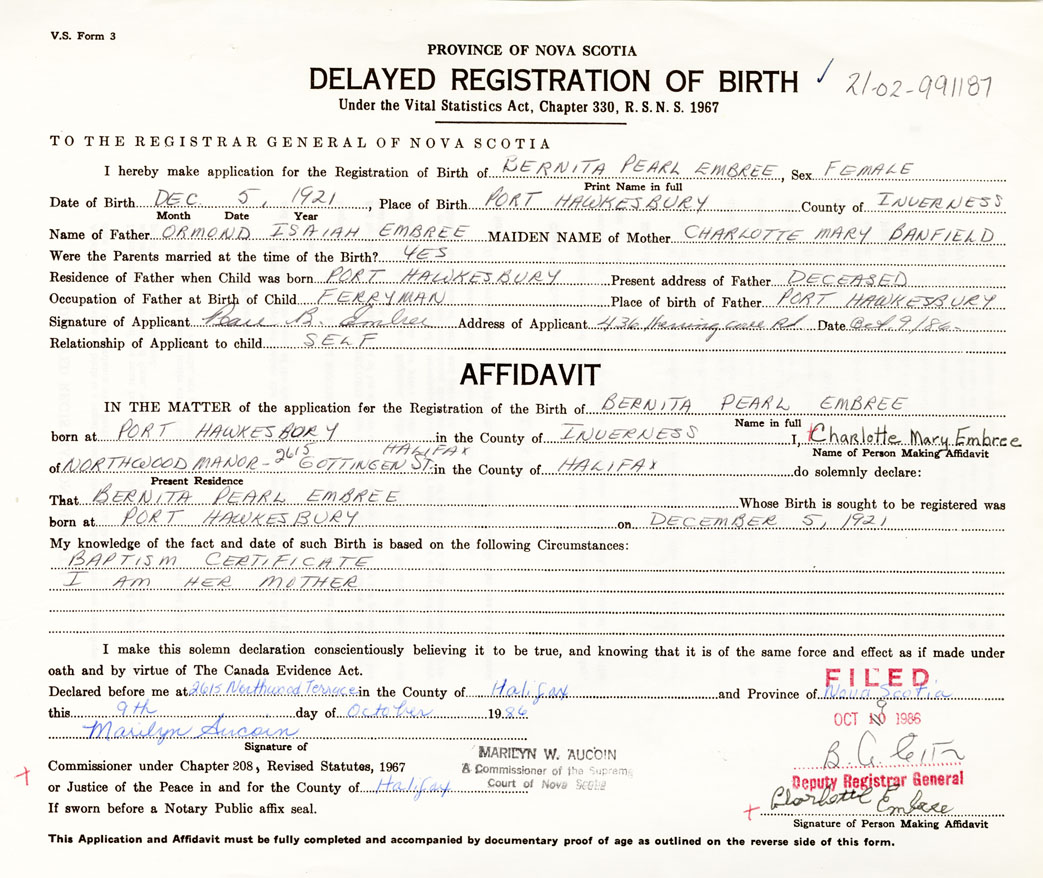 V.S. Form 3
PROVINCE OF NOVA SCOTIA
DELAYED REGISTRATION OF BIRTH ✓ 21-02-991187
Under the Vital Statistics Act, Chapter 330, R.S.N.S. 1967
TO THE REGISTRAR GENERAL OF NOVA SCOTIA
I hereby make application for the Registration of Birth of BERNITA PEARL EMBREE, Sex FEMALE
Print Name in full
Date of Birth DEC. 5, 1921, Place of Birth PORT HAWKESBURY County of INVERNESS
Month Date Year
Name of Father ORMOND ISAIAH EMBREE MAIDEN NAME of Mother CHARLOTTE MARY BANFIELD
Were the Parents married at the time of the Birth? YES
Residence of Father when Child was born PORT HAWKESBURY Present address of Father DECEASED
Occupation of Father at Birth of Child FERRYMAN Place of birth of Father PORT HAWKESBURY
Signature of Applicant Pearl B. Embree Address of Applicant 436 Herring Cove Rd Date Oct 9/86
Relationship of Applicant to child SELF
AFFIDAVIT
IN THE MATTER of the application for the Registration of the Birth of BERNITA PEARL EMBREE
Name in full
born at PORT HAWKESBURY in the County of INVERNESS I, Charlotte Mary Embree
Name of Person Making Affidavit
of NORTHWOOD MANOR - 2615 GOTTINGEN ST. HALIFAX in the County of HALIFAX do solemnly declare:
Present Residence
That BERNITA PEARL EMBREE Whose Birth is sought to be registered was
born at PORT HAWKESBURY on DECEMBER 5, 1921
My knowledge of the fact and date of such Birth is based on the following Circumstances:
BAPTISM CERTIFICATE
I AM HER MOTHER
I make this solemn declaration conscientiously believing it to be true, and knowing that it is of the same force and effect as if made under
oath and by virtue of The Canada Evidence Act.
FILED
Declared before me at 2615 Northwood Terrace in the County of Halifax and Province of Nova Scotia
this 9th day of October 1986
9
OCT 10 1986
Marilyn Aucoin
Signature of
MARILYN W. AUCOIN
A Commissioner of the Supreme
Court of Nova Scotia
Commissioner under Chapter 208, Revised Statutes, 1967
or Justice of the Peace in and for the County of Halifax
Deputy Registrar General
If sworn before a Notary Public affix seal.
Charlotte Embree
Signature of Person Making Affidavit
This Application and Affidavit must be fully completed and accompanied by documentary proof of age as outlined on the reverse side of this form.